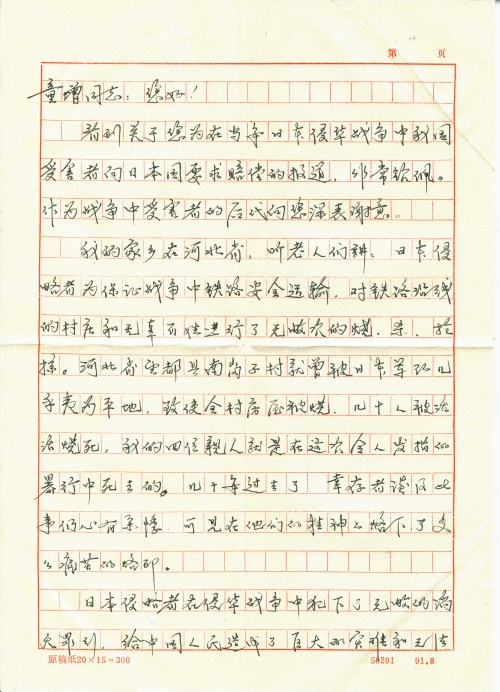 第　页
童增同志：您好！
看到关于您为在当年日本侵华战争中我国
受害者向日本国要求赔偿的报道，非常钦佩。
作为战争中受害者的后代向您深表谢意。
我的家乡在河北省，听老人们讲：日本侵
略者为保证战争中铁路安全运输，对铁路沿线
的村庄和无辜百姓进行了无数次的烧、杀、抢
掠。河北省望都县南岗子村就曾被日本军队几
乎夷为平地，致使全村房屋被烧，几十人被活
活烧死，我的四位亲人就是在这次令人发指的
暴行中死去的。几十年过去了　幸存者谈及此
事仍心有余悸，可见在他们的精神上烙下了多
么痛苦的烙印。
日本侵略者在侵华战争中犯下了无数的滔
天罪行，给中国人民造成了巨大的灾难和无法
原稿纸20×15=300　50201　91.8